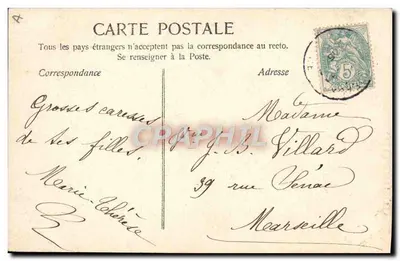 CARTE POSTALE
Tous les pays étrangers n'acceptent pas la correspondance au recto.
Se renseigner à la Poste.
Correspondance
Adresse
5
Grosses caresses
de tes filles,
Marie-Thérèse
Madame
J. B. Villard
39 rue Sénac
Marseille
CARAPHIL